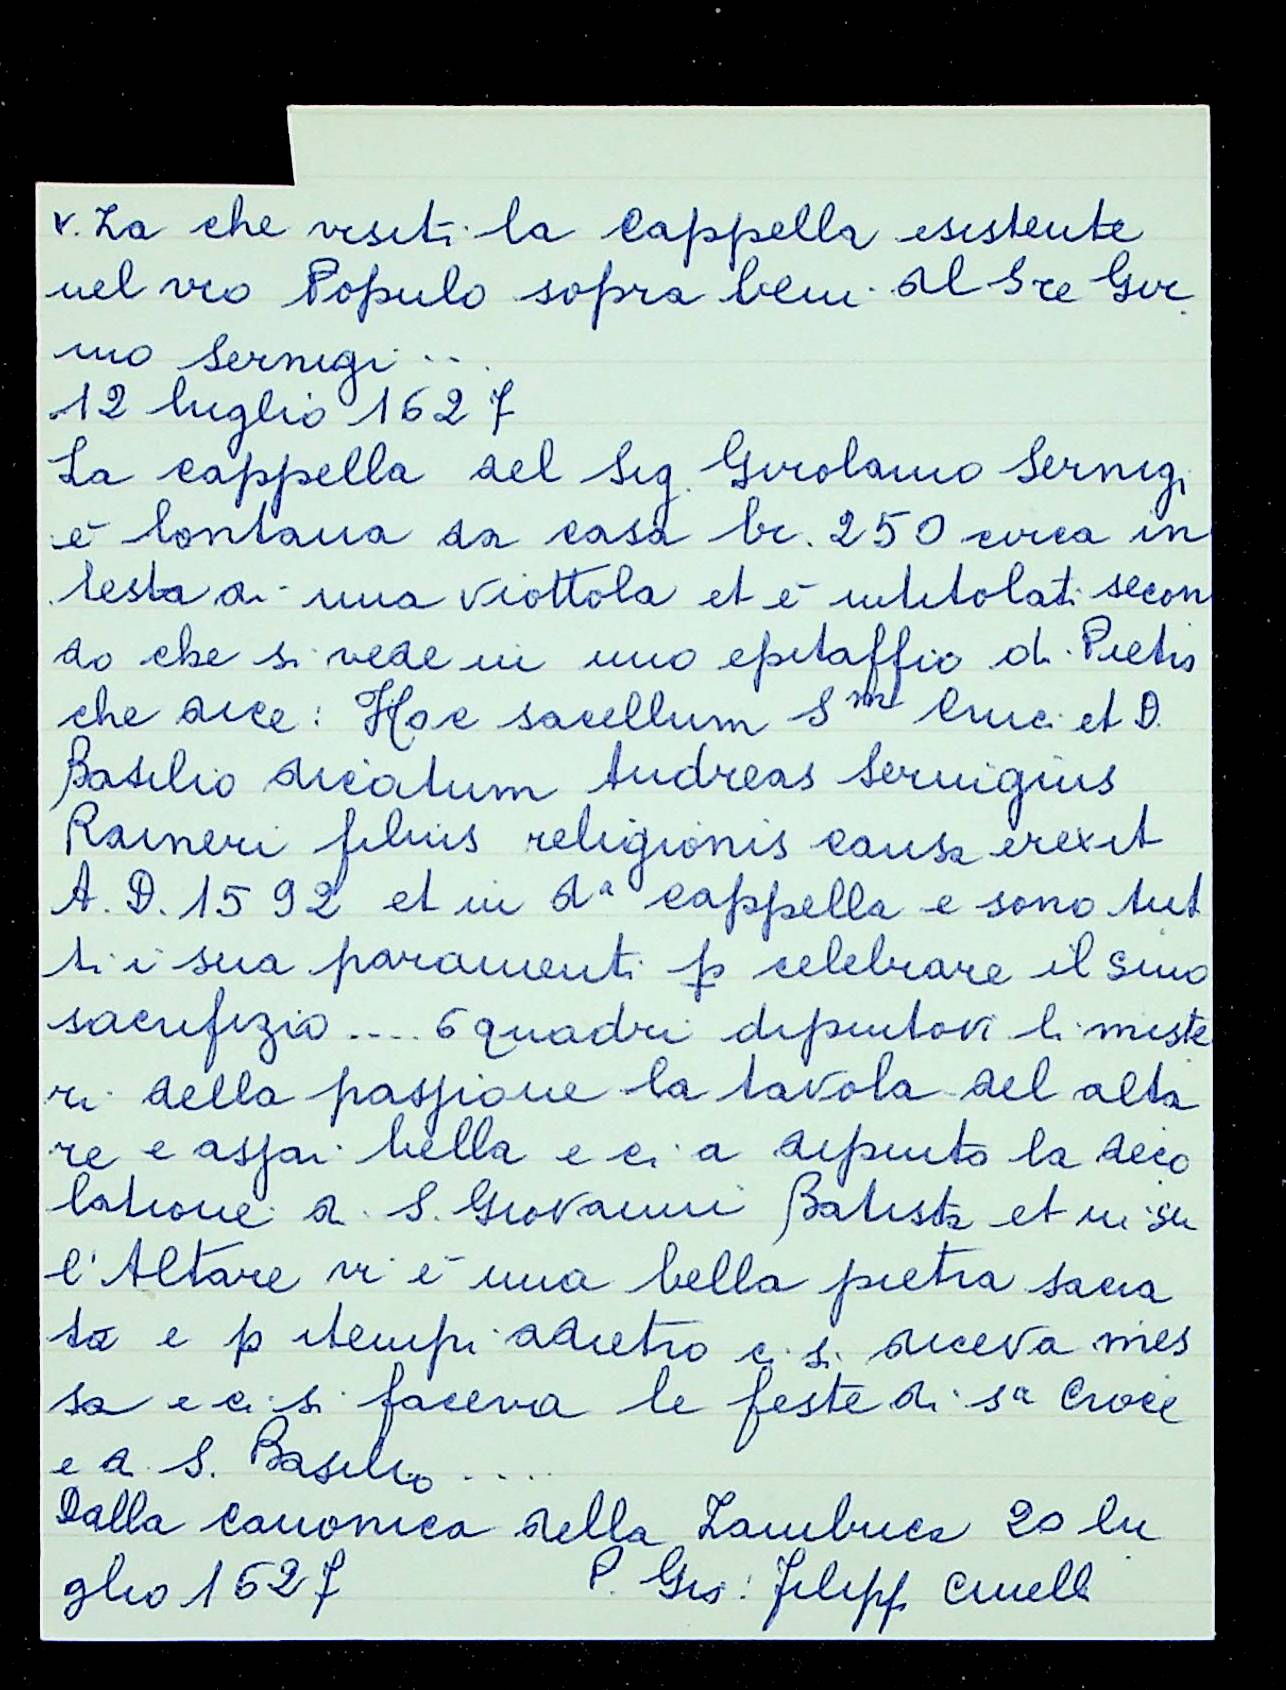 v. Za che visiti la Cappella esistente
nel vro Populo sopra beni del Sre Gir
mo Sernigi ...
12 luglio 1627
La cappella del Sig. Girolamo Sernigi
è lontana da casa br. 250 circa in
testa di una viottola et è intitolati secon
do che si vede in uno epitaffio di Pietra
che dice: Hoc sacellum S mae Cruci et D.
Basilio dicatum Andreas Sernigius
Raineri filius religionis causa erexit
A. D. 1592 et in da cappella e sono tut
ti i sua paramenti p celebrare il Smo
sacrifizio .... 6 quadri dipintovi li miste
ri della passione la tavola del alta
re e assai bella e ci a dipinto la deco
latione di S. Giovanni Batista et in su
l'Altare vi è una bella pietra sacra
ta e p i tempi adietro ci si diceva mes
sa e ci si faceva le feste di Sa Croce
e di S. Basilio ....
Dalla canonica della Zambuca 20 lu
glio 1627 P. Gio: Filipp Cinelli